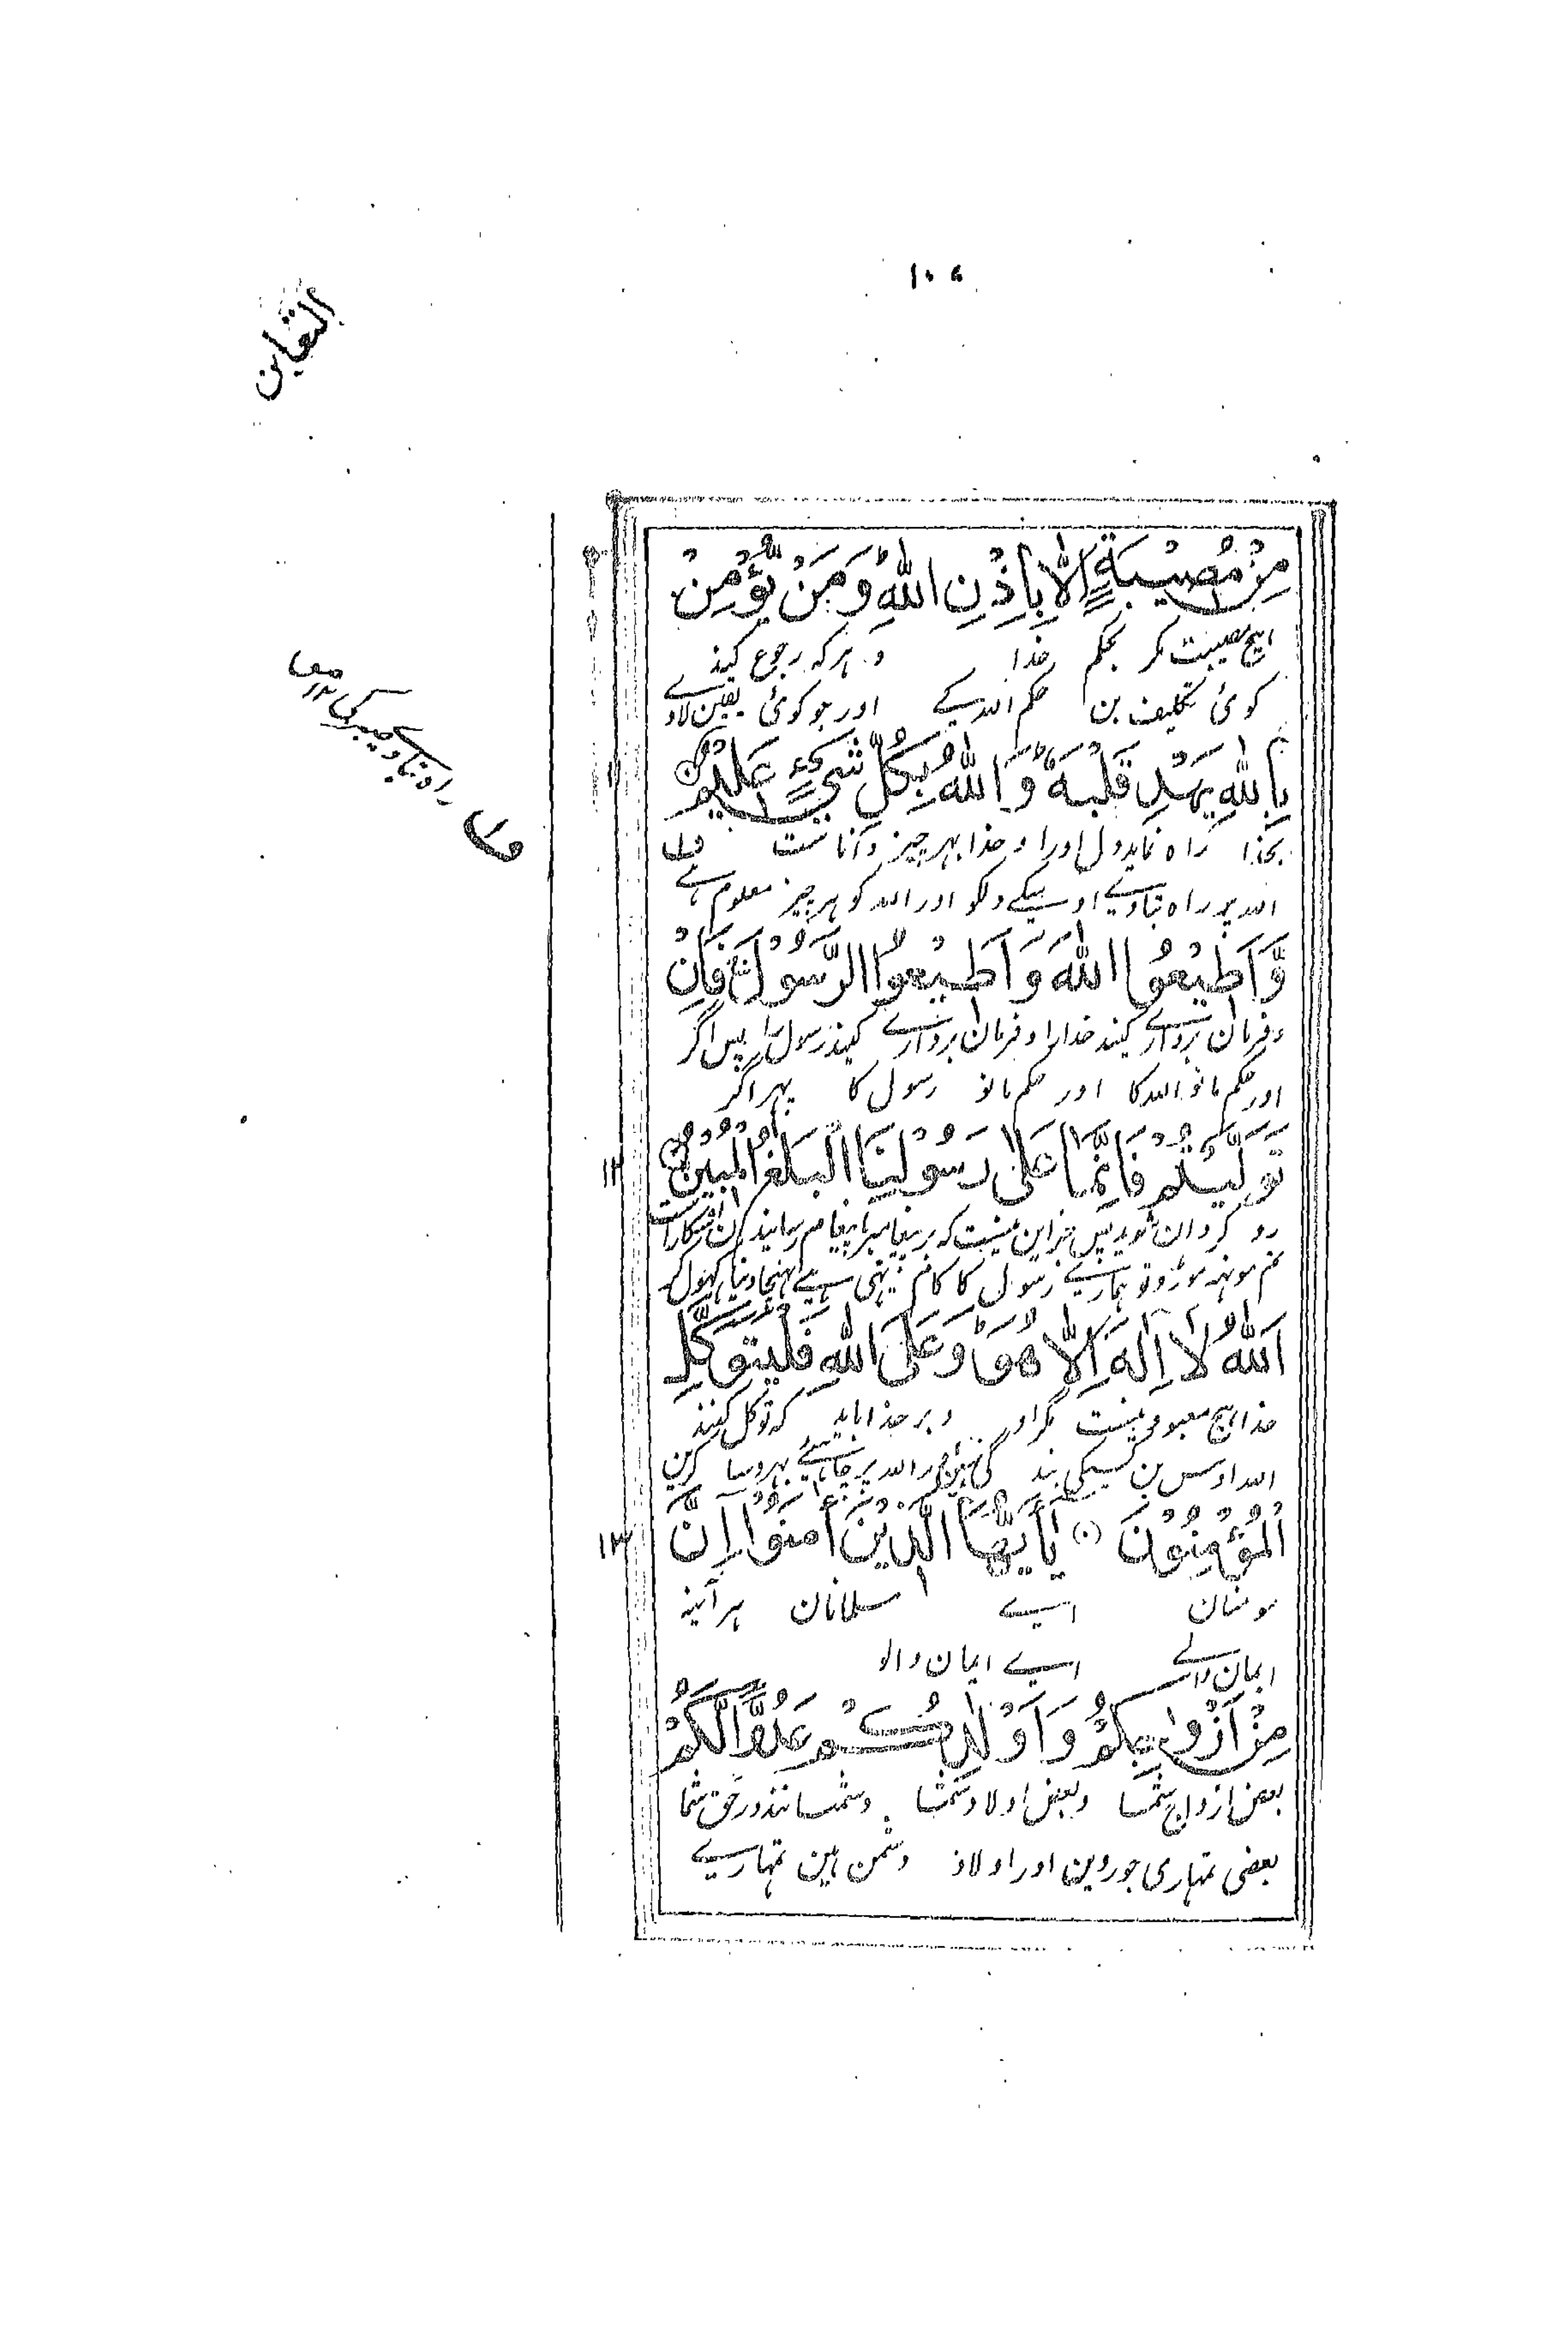 ۱۰۶
التغابن
مِنْ مُّصِيْبَةٍ اِلَّا بِاِذْنِ اللّٰهِ ؕ وَمَنْ يُّؤْمِنْ
ہیچ مصیبت مگر بحکم خدا و ہر کہ رجوع کند
کوئی تکلیف بن حکم اللہ کے اور جو کوئی یقین لاوے
بِاللّٰهِ يَهْدِ قَلْبَهٗ ؕ وَاللّٰهُ بِكُلِّ شَىْءٍ عَلِيْمٌ
۱۱
بخدا راہ نماید دل اورا و خدا بہر چیز داناست ف۱
اللہ پر راہ بتاوے اوسیکے دلکو اور اللہ کو ہر چیز معلوم ہے
ف۱ راہ بتاوے صبر کی ۱۲
وَاَطِيْعُوا اللّٰهَ وَاَطِيْعُوا الرَّسُوْلَ ۚ فَاِنْ
و فرمان برداری کنید خدارا و فرمان برداری کنید رسول را پس اگر
اور حکم مانو اللہ کا اور حکم مانو رسول کا پہر اگر
تَوَلَّيْتُمْ فَاِنَّمَا عَلٰى رَسُوْلِنَا الْبَلٰغُ الْمُبِيْنُ
۱۲
رو گردان شوید پس جز این نیست کہ بر پیغامبر ما پیغام رسانیدن آشکارا است
تم مونہہ موڑو تو ہماریے رسول کا کام یہی ہے پہنچا دینا کہول کر
اَللّٰهُ لَاۤ اِلٰهَ اِلَّا هُوَ ؕ وَعَلَى اللّٰهِ فَلْيَتَوَكَّلِ
خدا ہیچ معبود نیست مگر او و بر خدا باید کہ توکل کنند
اللہ اوس بن کسیکی بندگی نہین اور اللہ پر چاہئے بہروسا کرین
الْمُؤْمِنُوْنَ يٰۤاَيُّهَا الَّذِيْنَ اٰمَنُوْۤا اِنَّ
۱۳
مومنان ایے مسلمانان ہر آئینہ
ایمان والے ایے ایمان والو
مِنْ اَزْوَاجِكُمْ وَاَوْلَادِكُمْ عَدُوًّا لَّكُمْ
بعض ازواج شما و بعض اولاد شما دشمنانند در حق شما
بعضی تمہاری جوروین اور اولاد دشمن ہین تمہاریے